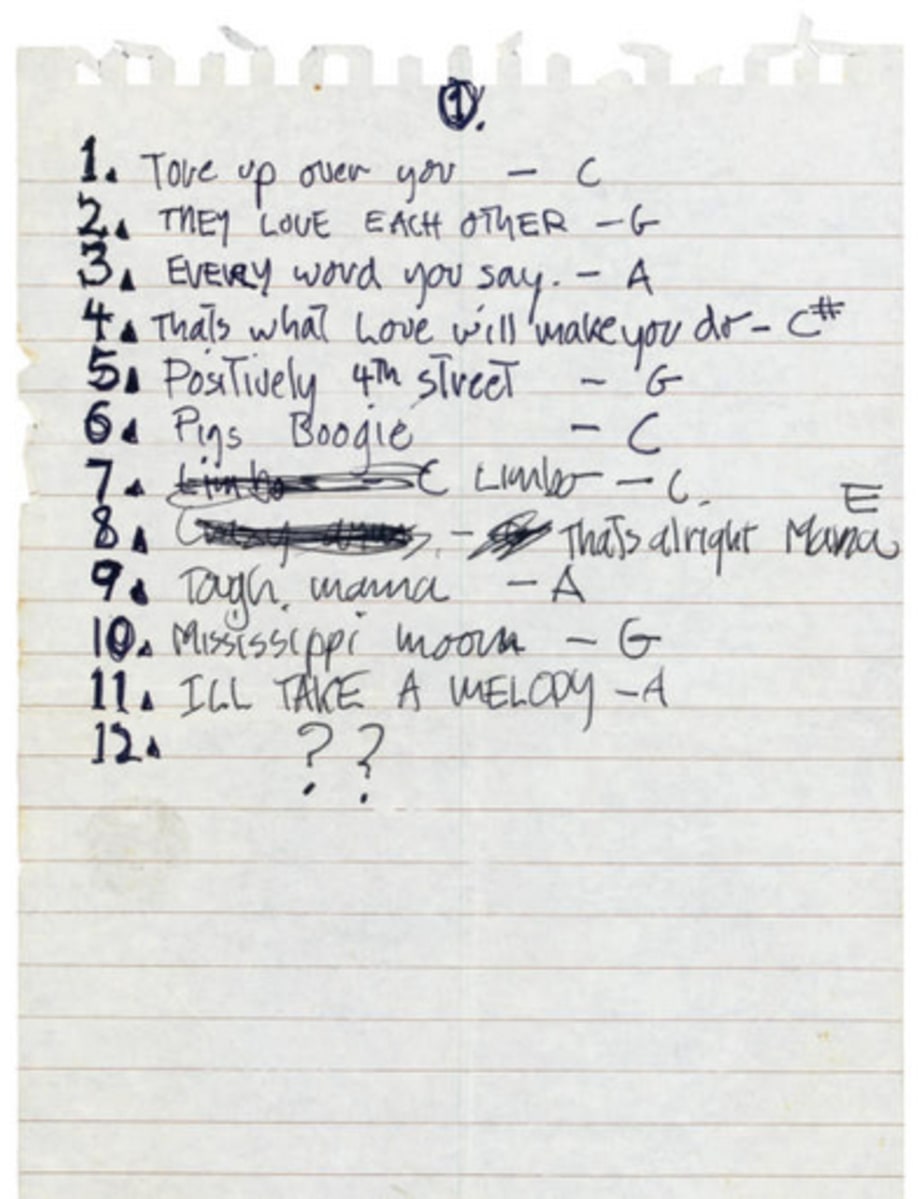 1.
1. Tore up over you - C
2. THEY LOVE EACH OTHER - G
3. EVERY word you say. - A
4. Thats what Love will make you do - C#
5. Positively 4Th street - G
6. Pigs Boogie - C
7. Limbo - C Limbo - C.
E
8. - Thats alright Mama
9. Tough mama - A
10. Mississippi moon - G
11. ILL TAKE A MELODY - A
12. ??